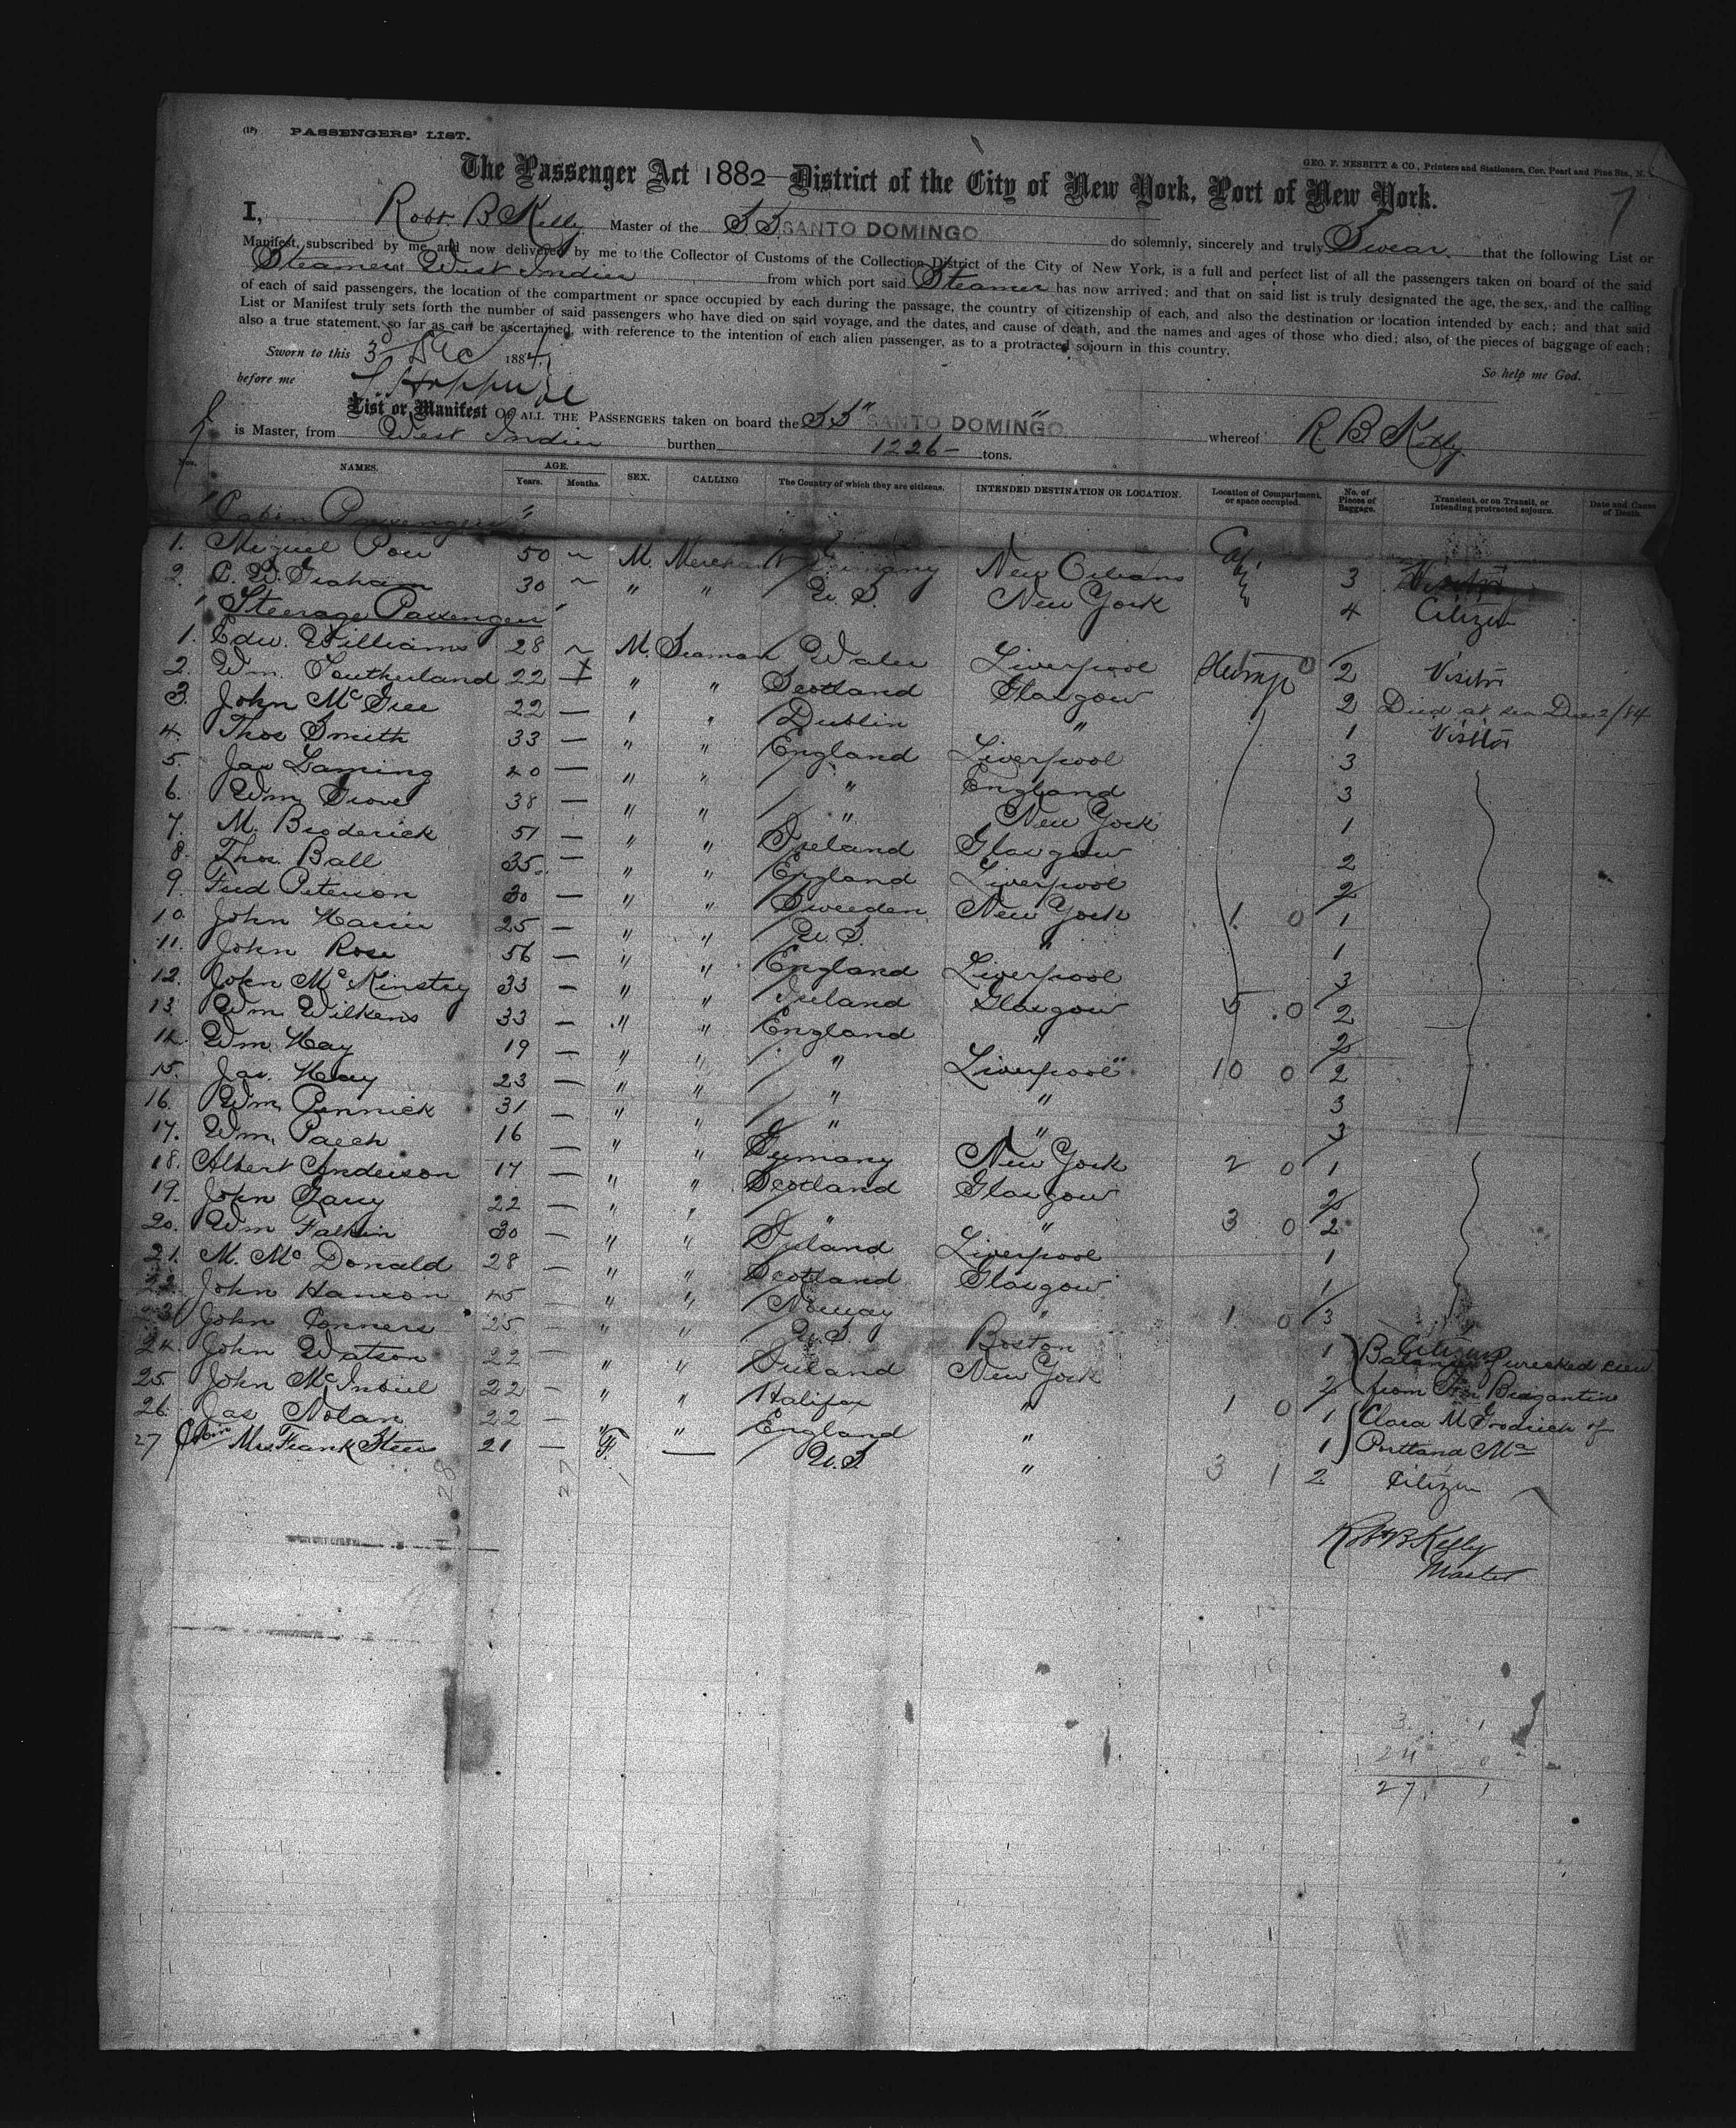 (18) PASSENGERS' LIST.
GEO. F. NESBITT & CO., Printers and Stationers, Cor. Pearl and Pine Sts., N. Y.
The Passenger Act 1882 District of the City of New York, Port of New York.
7
I, Robt. B Kelly Master of the SS SANTO DOMINGO do solemnly, sincerely and truly Swear that the following List or
Manifest, subscribed by me, and now delivered by me to the Collector of Customs of the Collection District of the City of New York, is a full and perfect list of all the passengers taken on board of the said
Steamer at West Indies from which port said Steamer has now arrived; and that on said list is truly designated the age, the sex, and the calling
of each of said passengers, the location of the compartment or space occupied by each during the passage, the country of citizenship of each, and also the destination or location intended by each; and that said
List or Manifest truly sets forth the number of said passengers who have died on said voyage, and the dates, and cause of death, and the names and ages of those who died; also, of the pieces of baggage of each;
also a true statement, so far as can be ascertained, with reference to the intention of each alien passenger, as to a protracted sojourn in this country.
Sworn to this 3 Dec 1884 So help me God.
before me
List or Manifest OF ALL THE PASSENGERS taken on board the SS " SANTO DOMINGO " whereof R B Kelly
is Master, from West Indies burthen 1226 — tons.
Nos. NAMES. AGE. Years. Months. SEX. CALLING The Country of which they are citizens. INTENDED DESTINATION OR LOCATION. Location of Compartment or space occupied. No. of Pieces of Baggage. Transient, or on Transit, or Intending protracted sojourn. Date and Cause of Death.
" Cabin Passengers "
1. Miguel Pou 50 ~ M. Merchant Germany New Orleans 3
2. C. W. Graham 30 ~ " " U. S. New York 4 Citizen
' Steerage Passengers '
1. Edw. Williams 28 ~ M. Seaman Wales Liverpool 0 2 Visitor
2. Wm. Southerland 22 " " Scotland Glasgow 2 Died at sea Dec 2/84
3. John McGree 22 — " " Dublin " 1 Visitor
4. Thos Smith 33 — " " England Liverpool 3
5. Jas Laming 40 — " " " England 3
6. Wm Grove 38 — " " " New York 1
7. M. Broderick 51 — " " Ireland Glasgow 2
8. Thos. Ball 35 — " " England Liverpool 2
9. Fred Peterson 30 — " " Sweeden New York 1 0 1
10. John Harris 25 — " " U. S. " 1
11. John Rose 56 — " " England Liverpool 3
12. John McKinstry 33 — " " Ireland Glasgow 5 0 2
13. Wm. Wilkens 33 — " " England " 2
14. Wm. Hay 19 — " " " Liverpool 10 0 2
15. Jas. Hay 23 — " " " " 3
16. Wm. Pennick 31 — " " " " 3
17. Wm. Paech 16 — " " Germany New York 2 0 1
18. Albert Anderson 17 — " " Scotland Glasgow 2
19. John Garry 22 — " " " " 3 0 2
20. Wm 30 — " " Ireland Liverpool 1
21. M. McDonald 28 — " " Scotland Glasgow 1
22. John Hanson 45 — " " Norway " 1 0 3
23. John Conners 25 — " " U. S. Boston 1 Citizen
24. John Watson 22 — " " Ireland New York 2 Balance of wrecked crew
25. John 22 — " " Halifax " 1 0 1 from Brigantine
26. Jas Nolan 22 — " " England " 1 Clara M Goodrich of
Portland Me
27 Cabin Mrs Frank Steers 21 — F. — U. S. " 3 1 2 Citizen
28 27
Robt B Kelly
Master
3 1
24 0
27 1